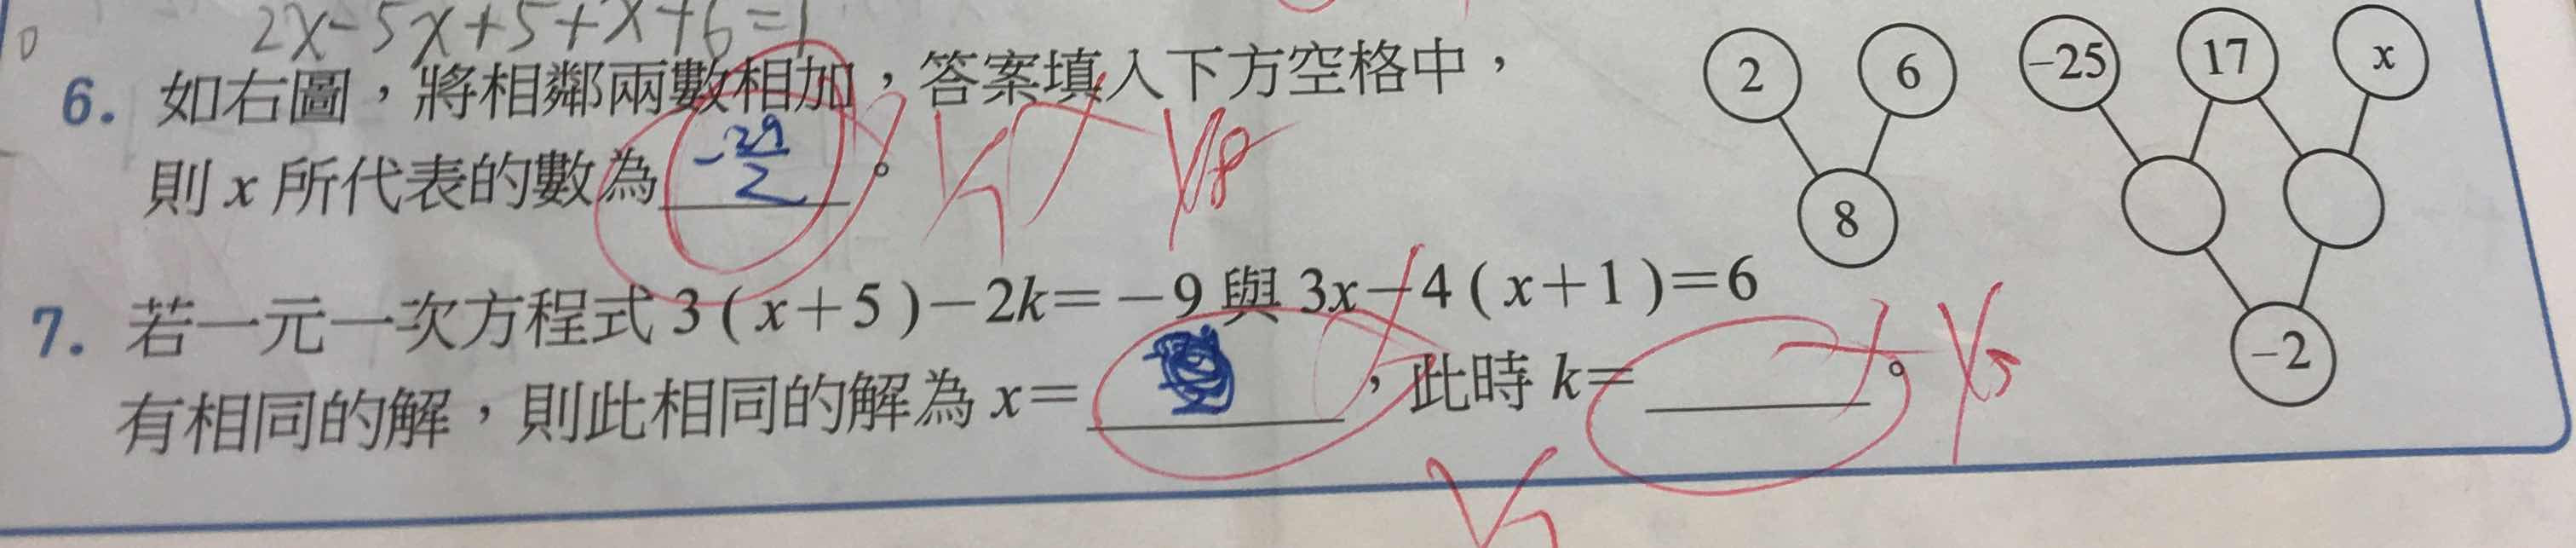 2x-5x+5+x+6=1
6. 如右圖,將相鄰兩數相加,答案填入下方空格中,
則 x 所代表的數為 -29/2 。
2 6 -25 17 x
8
-2
7. 若一元一次方程式 3(x+5)-2k=-9 與 3x-4(x+1)=6
有相同的解,則此相同的解為 x=____,此時 k=____。